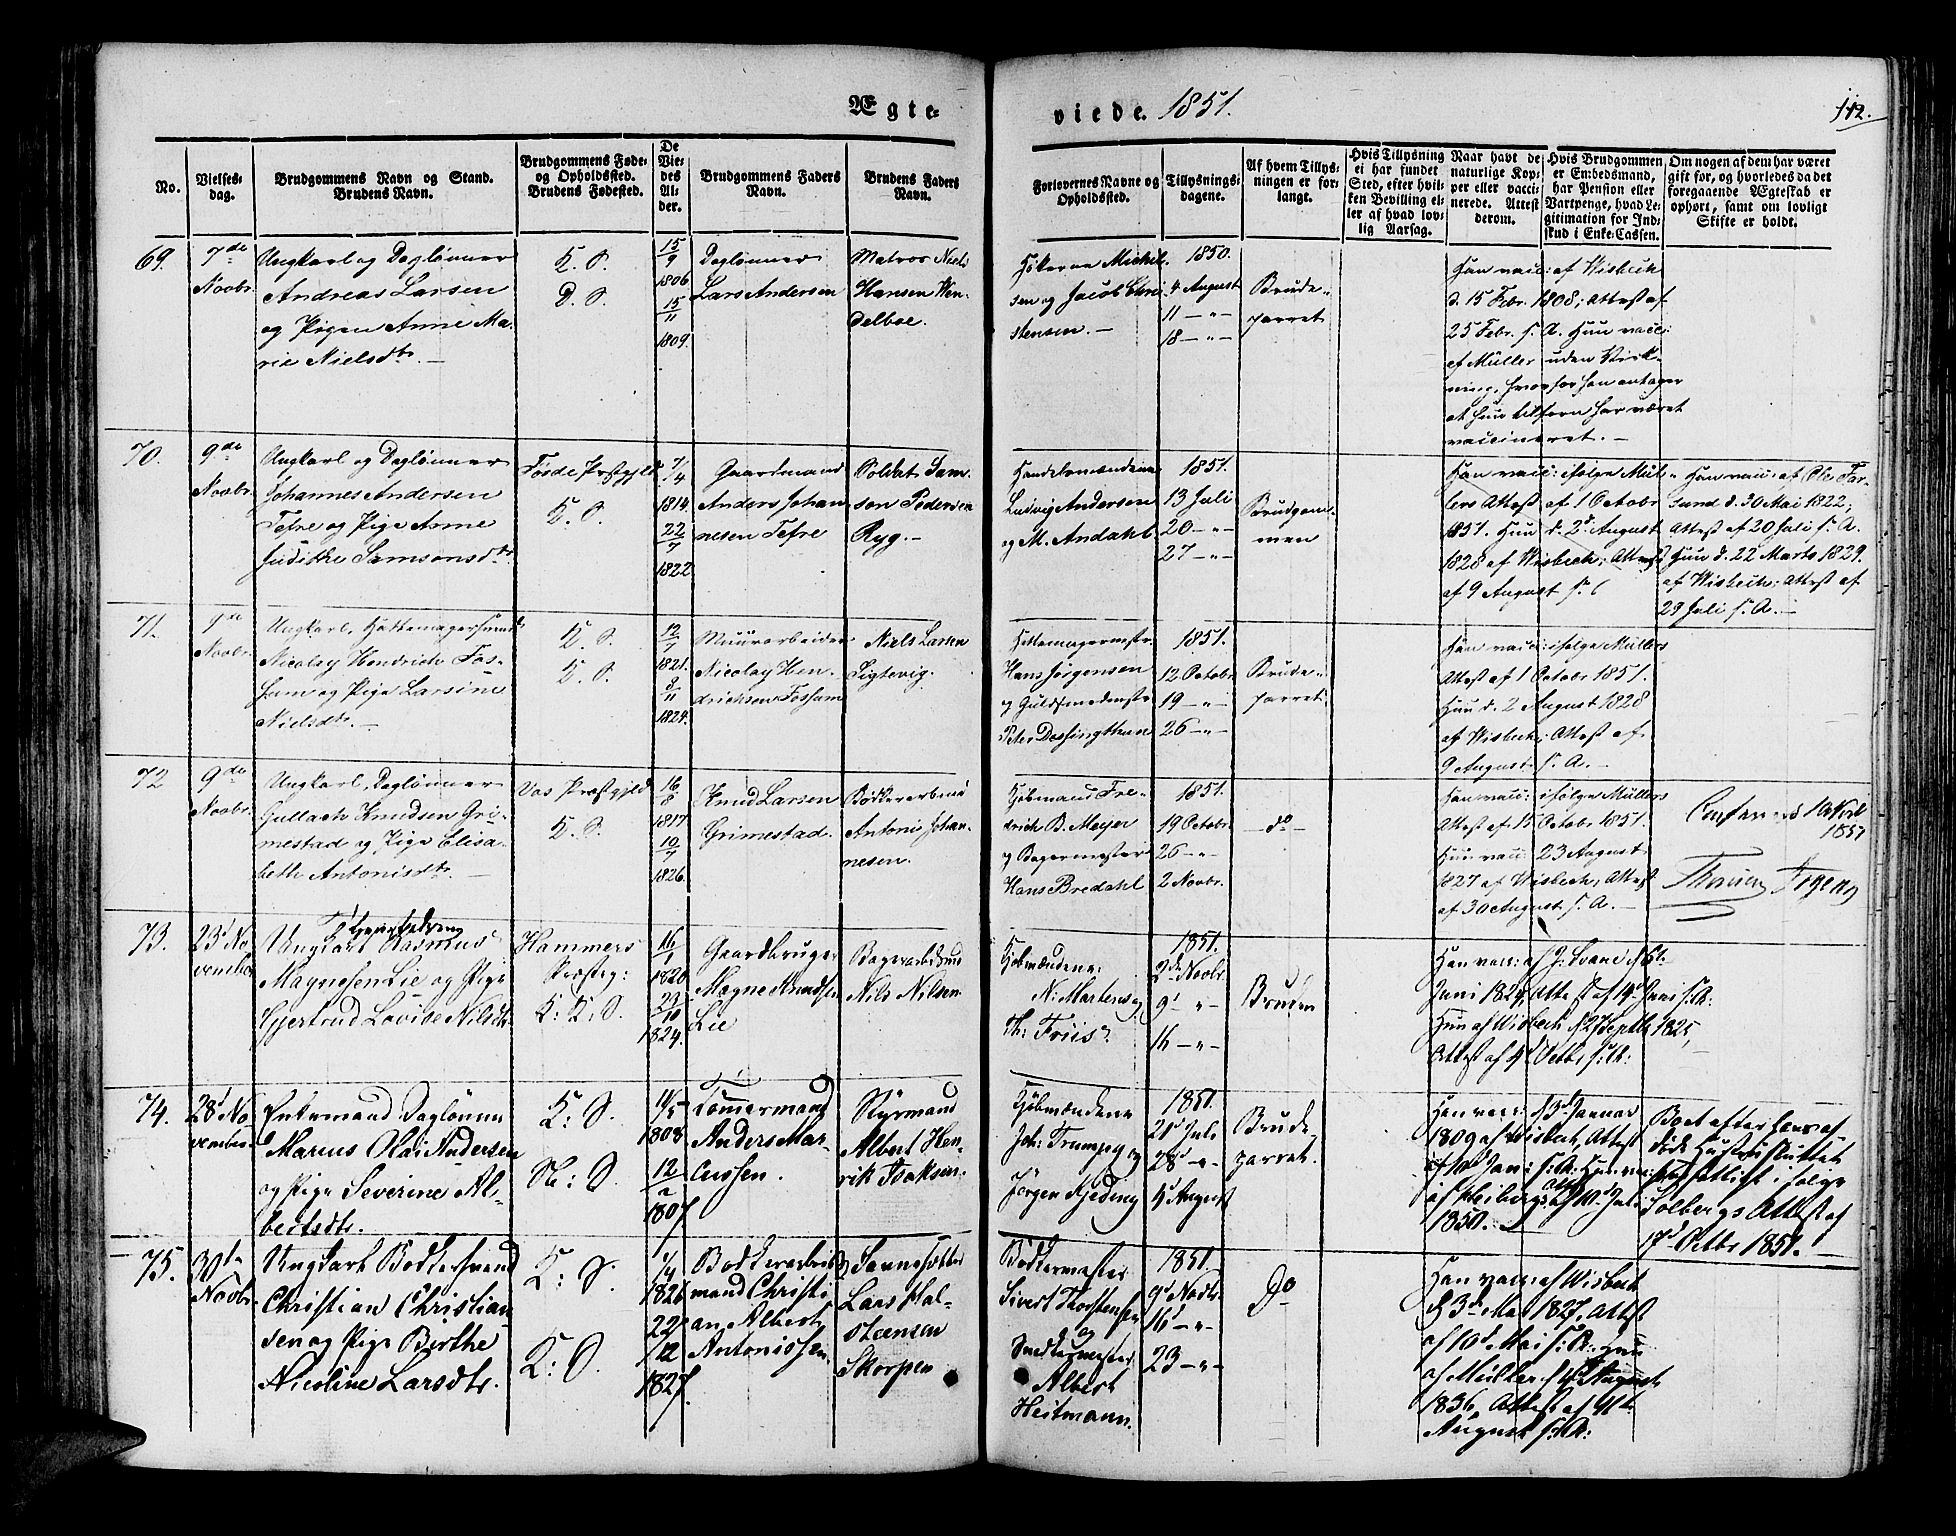 Ægte-
viede. 1851.
112.
No.
Vielses-
dag.
Brudgommens Navn og Stand.
Brudens Navn.
Brudgommens Føde-
og Opholdssted.
Brudens Fødested.
De
Vie-
des
Al-
der.
Brudgommens Faders
Navn.
Brudens Faders
Navn.
Forlovernes Navne og
Opholdssted.
Tillysnings-
dagene.
Af hvem Tillys-
ningen er for-
langt.
Hvis Tillysning
ei har fundet
Sted, efter hvil-
ken Bevilling el-
ler af hvad lov-
lig Aarsag.
Naar havt de
naturlige Kop-
per eller vacci-
nerede. Attest
derom.
Hvis Brudgommen
er Embedsmand,
har Pension eller
Vartpenge, hvad Le-
gitimation for Ind-
skud i Enke-Cassen.
Om nogen af dem har været
gift før, og hvorledes da det
foregaaende Ægteskab er
ophørt, samt om lovligt
Skifte er holdt.
69.
7de
Novbr.
Ungkarl og Daglønner
Andreas Larsen
og Pigen Anne Ma-
rie Nielsdtr. —
K. S.
D. S.
15/9
1806
15/11
1809.
Daglønner
Lars Andersen
Matros Niels
Hansen Wen-
delboe.
Høkerne Michel-
sen og Jacob Chri-
stensen. —
1850.
4 August
11 — „ —
18 — „ —
Brude-
parret
Han vacc: af Wisbech
d. 15 Febr. 1808; Attest af
25 Febr. s. A. Hun vacc:
af Müller uden Virk-
ning, hvorfor han antager
at hun tilforn har været
vaccineret. —
70.
9de
Novbr.
Ungkarl og Daglønner
Johannes Andersen
Tefre og Pige Anne
Judithe Samsonsdtr.
Førde Præstgjeld
K. S.
7/4
1814.
22/7
1822
Gaardmand
Anders Johan-
nesen Tefre
Soldat Sam-
son Pedersen
Ryg. —
Handelsmændene
Ludvig Andersen
og M. Andahl
1851.
13 Juli
20 — „ —
27 — „ —
Brudgom-
men
Han vacc: ifølge Mül-
lers Attest af 1 Octobr
1851. Hun d. 2d August
1828 af Wisbech; Attest
af 9 August s.
Han vacc: af Ole Far-
sund d. 30 Mai 1822;
Attest af 20 Juli s. A.
Hun d. 22 Marts 1829.
af Wisbech; Attest af
29 Juli s. A. —
71.
9de
Novbr.
Ungkarl, Hattemagersvend
Nicolay Hendrich Fos-
sum og Pige Larsine
Nielsdtr. —
K. S.
K. S.
12/7
1821.
8/11
1824.
Muurarbeider
Nicolay Hen-
drichsen Fossum
Niels Larsen
Sigtevig.
Hattemagermstr.
Hans Jørgensen
og Guldsmedmestr
Peter Døssingthun
1851.
12 Octobr
19 — „ —
26 — „ —
Brude-
parret.
Han vacc: ifølge Müllers
Attest af 1 Octobr 1851.
Hun d. 2 August 1828
af Wisbech; Attest af
9 August s. A. —
72
9de
Novbr.
Ungkarl, Dagløner
Gullach Knudsen Gri-
mestad og Pige Elisa-
beth Antonisdtr. —
Vos Præstgjeld
K. S.
16/8
1817.
10/7
1826.
Knud Larsen
Grimestad.
Bødkerarbmd
Antoni Johan-
nesen.
Kjøbmand Fre-
drich B. Meyer
og Bagermester
Hans Bredahl
1851.
19 Octobr.
26 — „ —
2 Novbr.
— do —
Han vacc: ifølge Müllers
Attest af 15 Octobr 1851.
Hun vacc: 23 August
1827 af Wisbech; Attest
af 30 August s. A. —
1851
73.
23d No
vember
Ungkarl Rasmus
Magnesen Lie og Pige
Gjertrud Lovise Nilsdtr.
Hammers
Præsteg:
K: K: S.
16/1
1820
29/10
1824.
Gaardbruger
Magne Knudsen
Lie
Bagerarbdsmd
Nils Nilsen
Kjøbmændene:
N: Martens og
Th: Friis.
1851.
2de Novbr.
9d „
16 — „ —
Bruden
Han vacc: af J: Svane
Juni 1824, Attest af 14d Juni s. A:
Hun af Wisbech d 27 Septbr 1825,
Attest af 4d Octbr s. A:
74.
28d No
vember
Enkemand Dagløner
Marius Olai Andersen
og Pige Severine Al-
bertsdtr.
K: S.
N: S.
11/5
1808.
12/2
1807.
Tømermand
Anders Mar-
cussen.
Styrmand
Albert Hen-
rik Isaksen
Kjøbmændene
Joh: Trumpy og
Jørgen Gjeding
1851.
21d Juli
28d — „ —
4d August
Brude-
parret.
Han vacc: d 3d Januar
1809 af Wisbech, Attest
af 10d Jan: s. A: Hun vac:
af Heiberg Att: af 10d Juli
1850. —
Boet efter hans af-
døde Hustru sluttet
skifteretligt i følge
Solbergs Attest af
17d Octbr 1851. —
75.
30te
Novbr.
Ungkarl Bødkersvend
Christian Christian-
sen og Pige Berthe
Nicoline Larsdtr.
K: S.
K: S.
1/4
1826
22/12
1827.
Bødkerarbeids-
mand Christi-
an Albert
Antonissen
Lars Hal-
steensen
Skorpen
Bødkermester
Sivert Thorstensen
og
Snedkermester
Albert
Heitmann.
1851.
9d Novbr.
16d — „ —
23 — „ —
Do
Han vacc: af Wisbech
d 3d Mai 1827. Attest
af 10d Mai s: A. Hun
af Müller d 4d August
1836, Attest af 11te
August s: A: